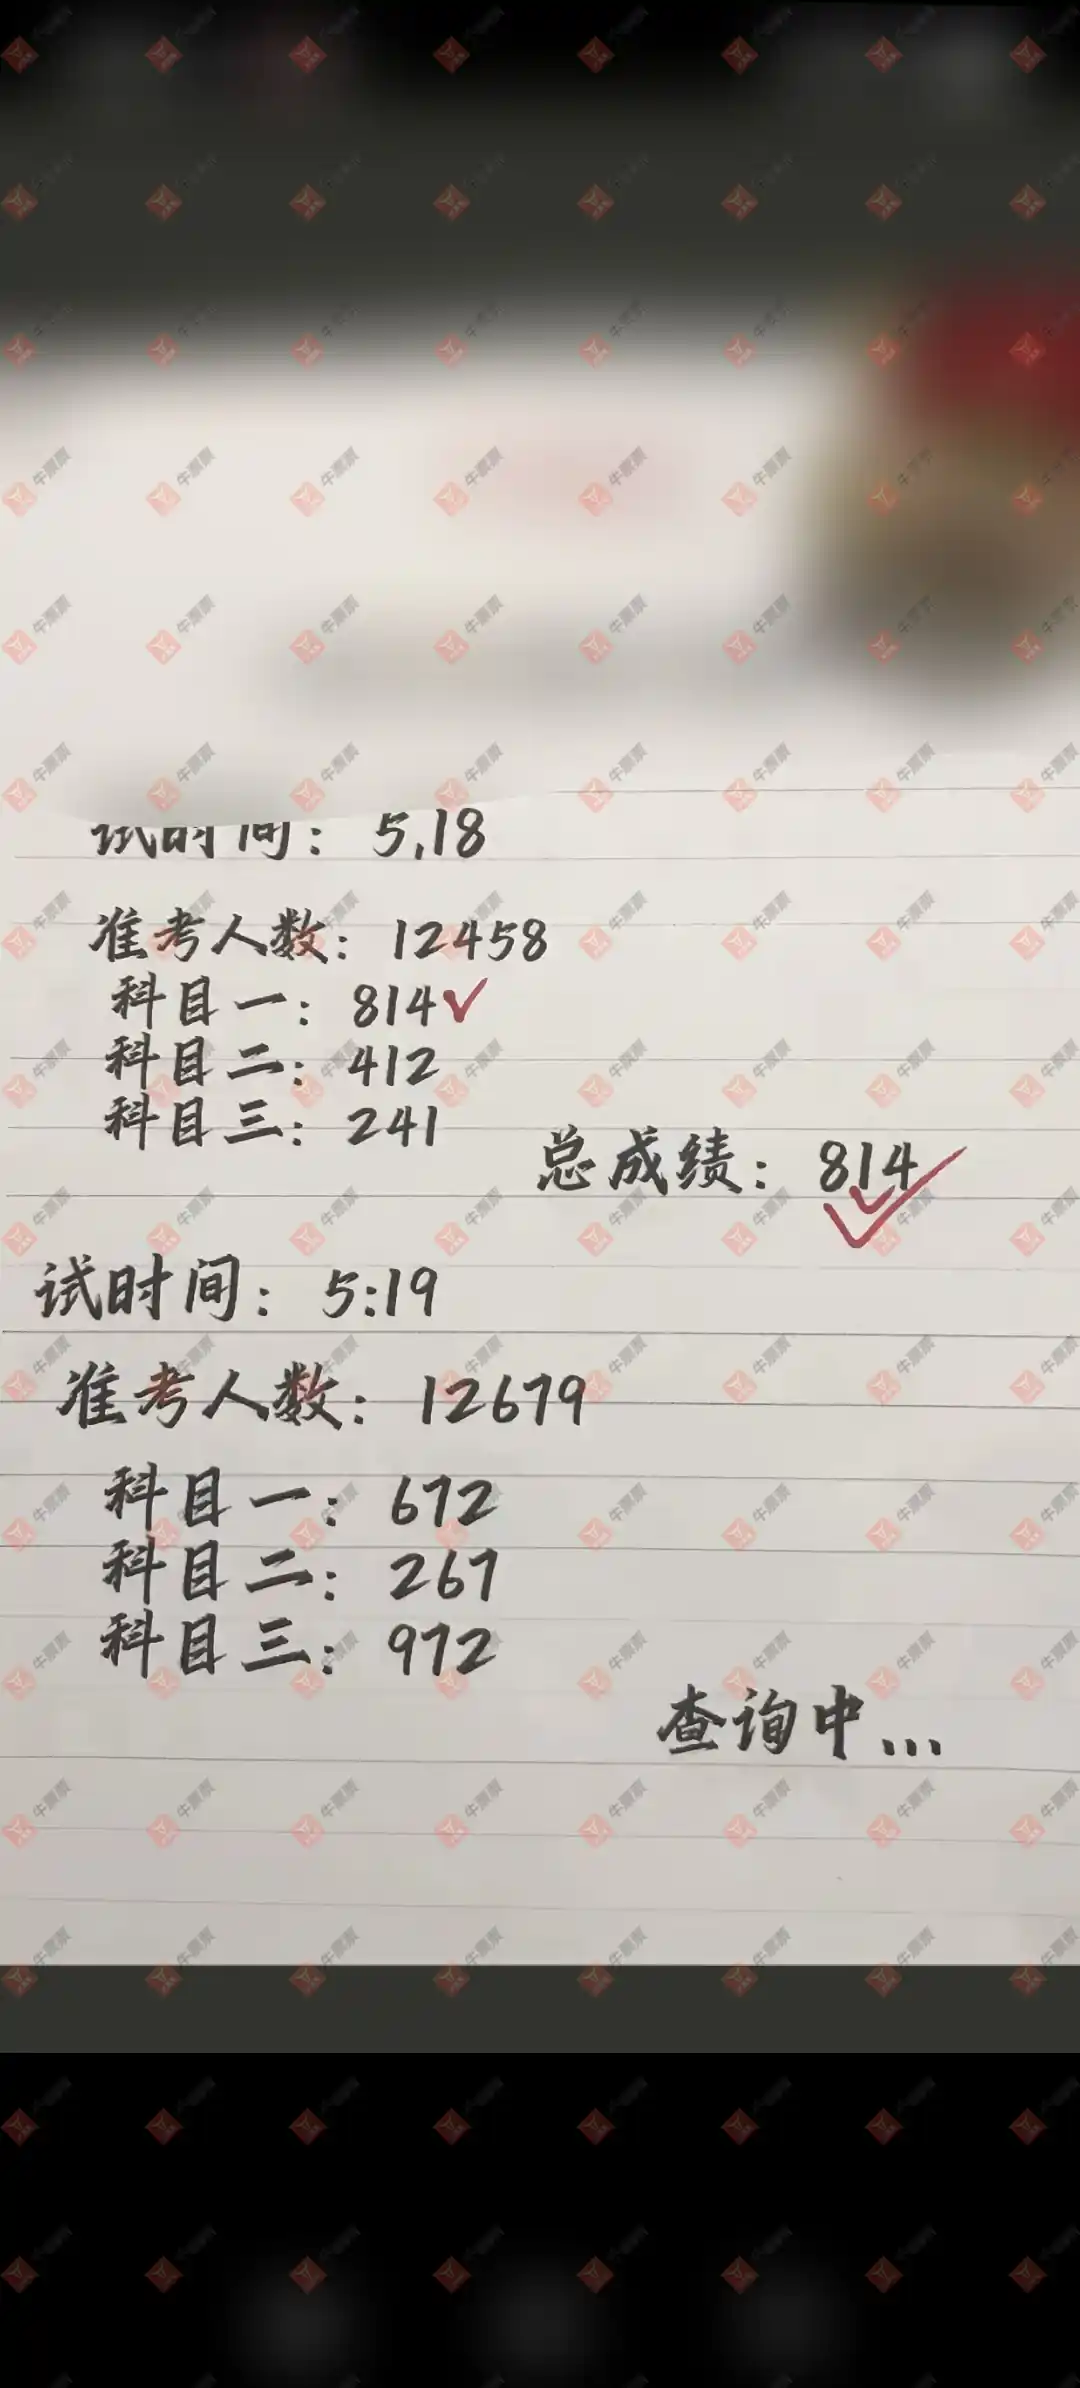 试时间：5,18
准考人数：12458
科目一：814
科目二：412
科目三：241
总成绩：814
试时间：5:19
准考人数：12679
科目一：672
科目二：267
科目三：972
查询中...
牛票票